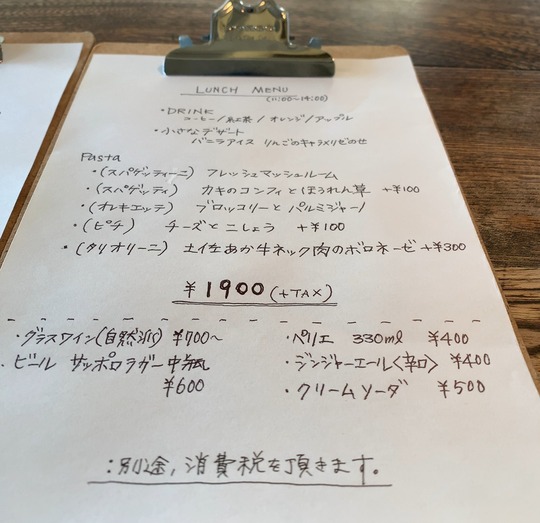 LUNCH MENU
(11:00〜14:00)
・DRINK
コーヒー/紅茶/オレンジ/アップル
・小さなデザート
バニラアイス りんごのキャラメリゼのせ
Pasta
・(スパゲッティーニ) フレッシュマッシュルーム
・(スパゲッティ) カキのコンフィとほうれん草 +¥100
・(オレキエッテ) ブロッコリーとパルミジャーノ
・(ピチ) チーズとこしょう +¥100
・(タリオリーニ) 土佐あか牛ネック肉のボロネーゼ +¥300
¥1900 (+TAX)
・グラスワイン(自然派) ¥700〜
・ビール サッポロラガー中瓶
¥600
・ペリエ 330ml ¥400
・ジンジャーエール〈辛口〉 ¥400
・クリームソーダ ¥500
:別途,消費税を頂きます。